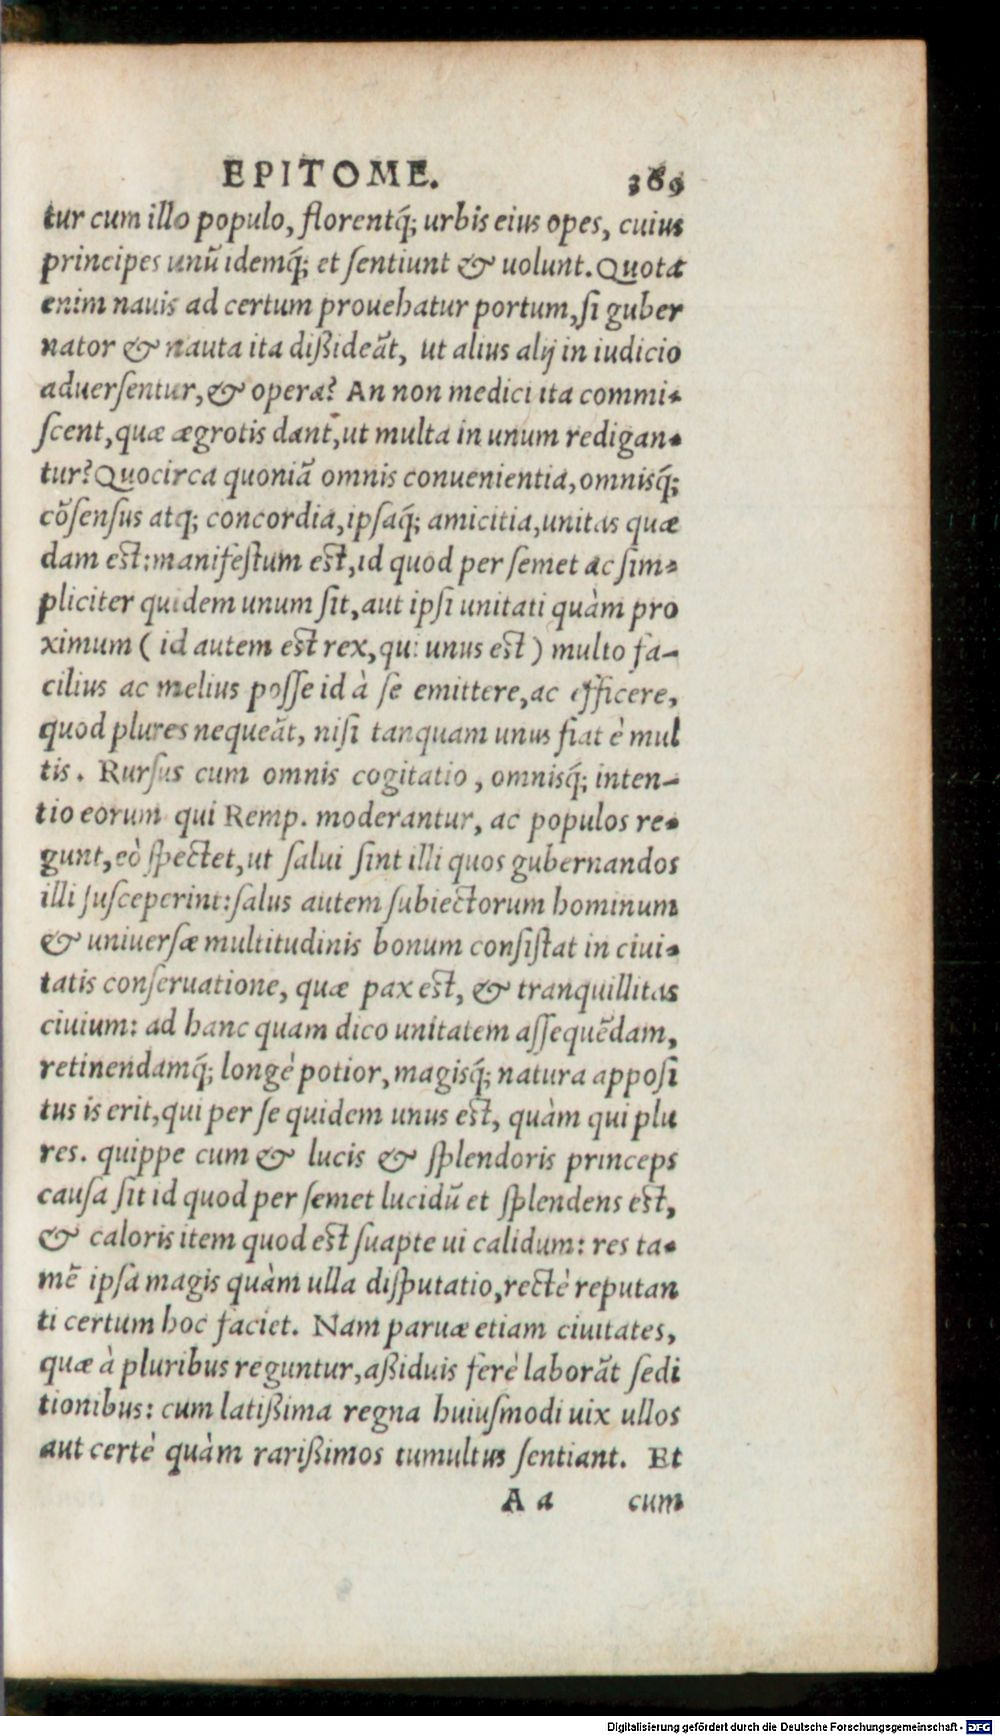 EPITOME. 369
tur cum illo populo, florentq́; urbis eius opes, cuius
principes unũ idemq́; et sentiunt & uolunt. Quota
enim nauis ad certum prouehatur portum, si guber
nator & nauta ita dißideãt, ut alius alij in iudicio
aduersentur, & opera? An non medici ita commi-
scent, quæ ægrotis dant, ut multa in unum redigan-
tur? Quocirca quoniã omnis conuenientia, omnisq́;
cõsensus atq; concordia, ipsaq́; amicitia, unitas quæ
dam est: manifestum est, id quod per semet ac sim-
pliciter quidem unum sit, aut ipsi unitati quàm pro
ximum ( id autem est rex, qui unus est ) multo fa-
cilius ac melius posse id à se emittere, ac efficere,
quod plures nequeãt, nisi tanquam unus fiat è mul
tis. Rursus cum omnis cogitatio, omnisq́; inten-
tio eorum qui Remp. moderantur, ac populos re-
gunt, eò spectet, ut salui sint illi quos gubernandos
illi susceperint: salus autem subiectorum hominum
& uniuersæ multitudinis bonum consistat in ciui-
tatis conseruatione, quæ pax est, & tranquillitas
ciuium: ad hanc quam dico unitatem assequẽdam,
retinendamq́; longè potior, magisq́; natura apposi
tus is erit, qui per se quidem unus est, quàm qui plu
res. quippe cum & lucis & splendoris princeps
causa sit id quod per semet lucidũ et splendens est,
& caloris item quod est suapte ui calidum: res ta-
mẽ ipsa magis quàm ulla disputatio, rectè reputan
ti certum hoc faciet. Nam paruæ etiam ciuitates,
quæ à pluribus reguntur, aßiduis ferè laborãt sedi
tionibus: cum latißima regna huiusmodi uix ullos
aut certè quàm rarißimos tumultus sentiant. Et
A a cum
Digitalisierung gefördert durch die Deutsche Forschungsgemeinschaft - DFG